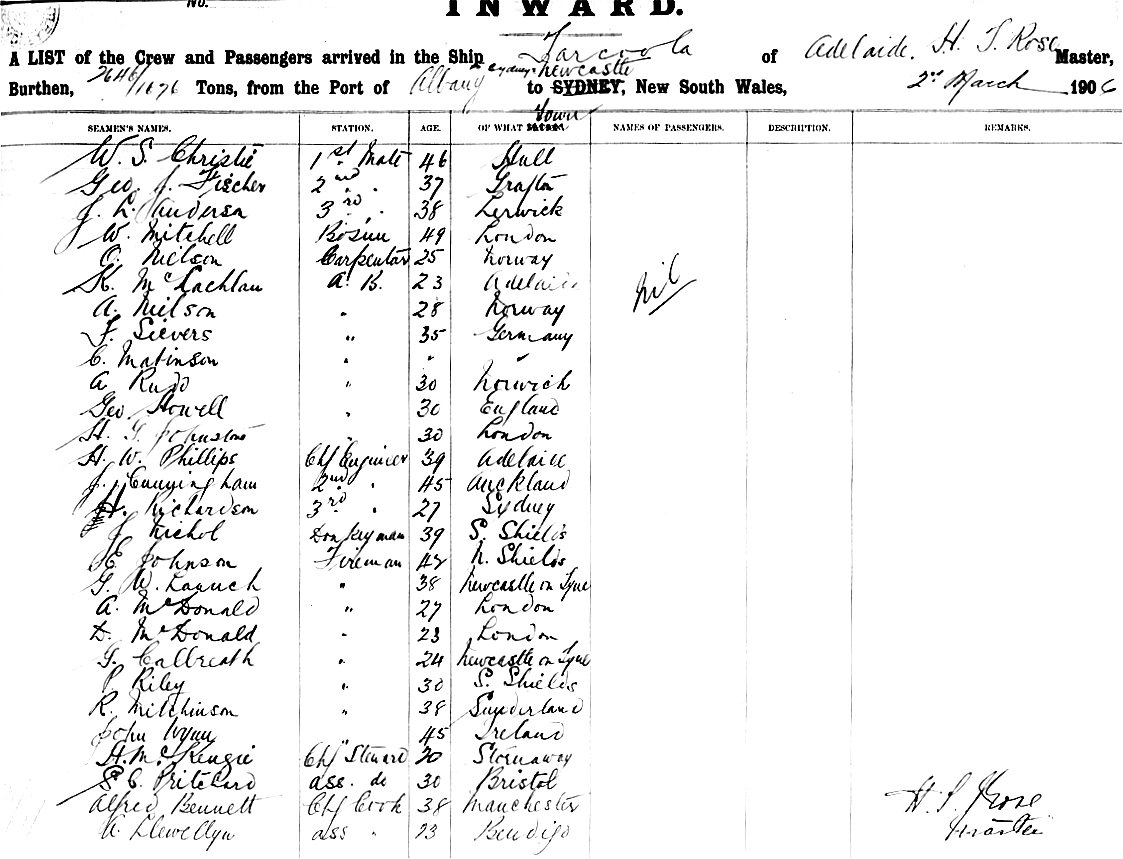 No.
INWARD.
A LIST of the Crew and Passengers arrived in the Ship Tarcoola of Adelaide, H. S. Rose Master,
Burthen, 2646/1676 Tons, from the Port of Albany to SYDNEY, Sydney Newcastle New South Wales, 2nd March 1906
SEAMEN'S NAMES. STATION. AGE. OF WHAT Town NAMES OF PASSENGERS. DESCRIPTION. REMARKS.
W. S. Christie 1st Mate 46 Hull
Geo. J. Fischer 2nd " 37 Grafton
J. L. Anderson 3rd " 38 Lerwick
W. Mitchell Bosun 49 London
O. Nielson Carpenter 25 Norway
K. McLachlan A. B. 23 Adelaide
A. Nilson " 28 Norway nil
F. Sievers " 35 Germany
C. Matinson " " "
A Rudd " 30 Norwich
Geo Howell " 30 England
H. G. Johnston " 30 London
H. W. Phillips Chf Engineer 39 Adelaide
J. Cunningham 2nd " 45 Auckland
H. Richardson 3rd " 27 Sydney
J Nichol Donkeyman 39 S. Shields
E. Johnson Fireman 42 N. Shields
G. W. Launch " 38 Newcastle on Tyne
A. McDonald " 27 London
D. McDonald " 23 London
T. Calbreath " 24 Newcastle on Tyne
P Riley " 30 S. Shields
R. Mitchinson " 38 Sunderland
John Wynn " 45 Ireland
H. McKenzie Chf Steward 30 Stornaway
S C. Pritchard ass. do 30 Bristol
Alfred Bennett Chf Cook 38 Manchester H. S. Rose
A. Llewellyn ass " 23 Bendigo Master